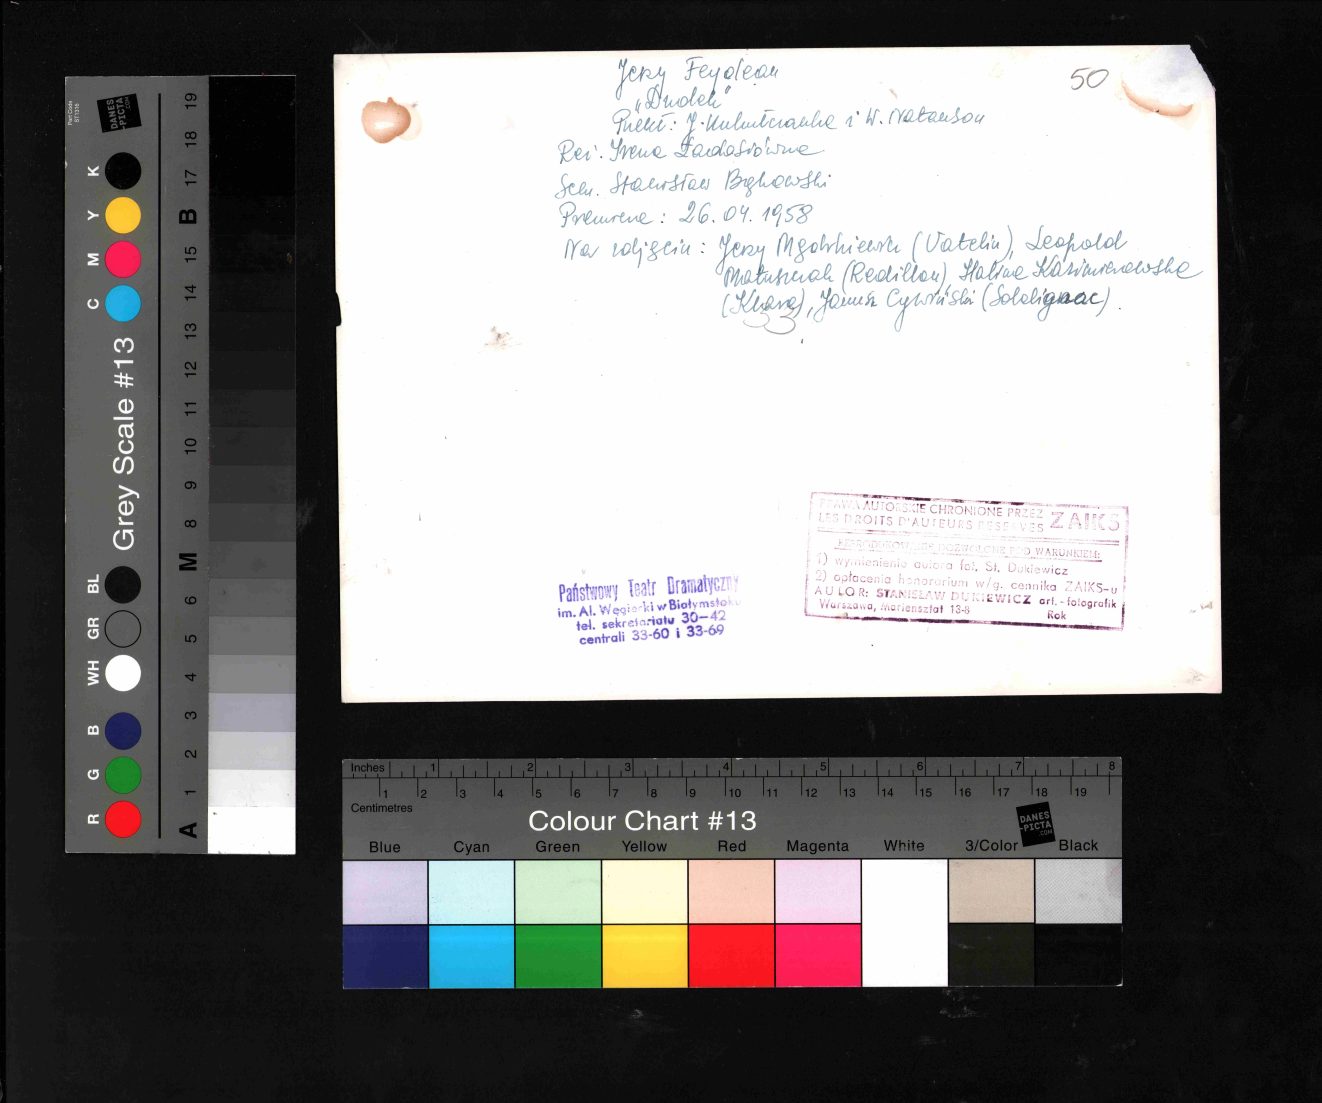 50
Jerzy Feydeau
„Dudek"
Przekł: J. i W. Natanson
Reż. Irena Ładosiówna
Scen. Stanisław Bąkowski
Premiera: 26.04.1958
Na zdjęciu: Jerzy (Vatelin), Leopold
Matuszczak (Redillon), Halina Kazimierowska
(Klara), Janusz Cywiński (Soldignac).
33
PRAWA AUTORSKIE CHRONIONE PRZEZ ZAIKS
LES DROITS D'AUTEURS RÉSERVÉS
REPRODUKOWANIE DOZWOLONE POD WARUNKIEM:
1) wymienienia autora fot. St. Dukiewicz
2) opłacenia honorarium w/g. cennika ZAIKS-u
AUTOR: STANISŁAW DUKIEWICZ art.-fotografik
Warszawa, Mariensztat 13-8 Rok
Państwowy Teatr Dramatyczny
im. Al. Węgierki w Białymstoku
tel. sekretariatu 30-42
centrali 33-60 i 33-69
Grey Scale #13
DANES
-PICTA
.COM
K Y M C BL GR WH B G R
A 1 2 3 4 5 6 M 8 9 10 11 12 13 14 15 B 17 18 19
Inches 1 2 3 4 5 6 7 8
1 2 3 4 5 6 7 8 9 10 11 12 13 14 15 16 17 18 19
Centimetres
Colour Chart #13
DANES
-PICTA
.COM
Blue Cyan Green Yellow Red Magenta White 3/Color Black